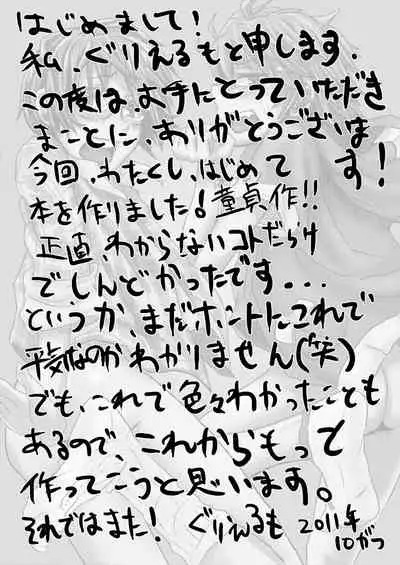 はじめまして!
私、ぐりえるもと申します.
この度は、お手にとっていただき
まことに、ありがとうございま
す!
今回、わたくし、はじめて
本を作りました!童貞作!!
正直、わからないコトだらけ
で、しんどかったです...
というか、まだホントにこれで
平気なのかわかりません(笑)
でも、これで色々わかったことも
あるので、これからもって
作ってこうと思います。
それではまた! ぐりえるも 2011年
10がつ